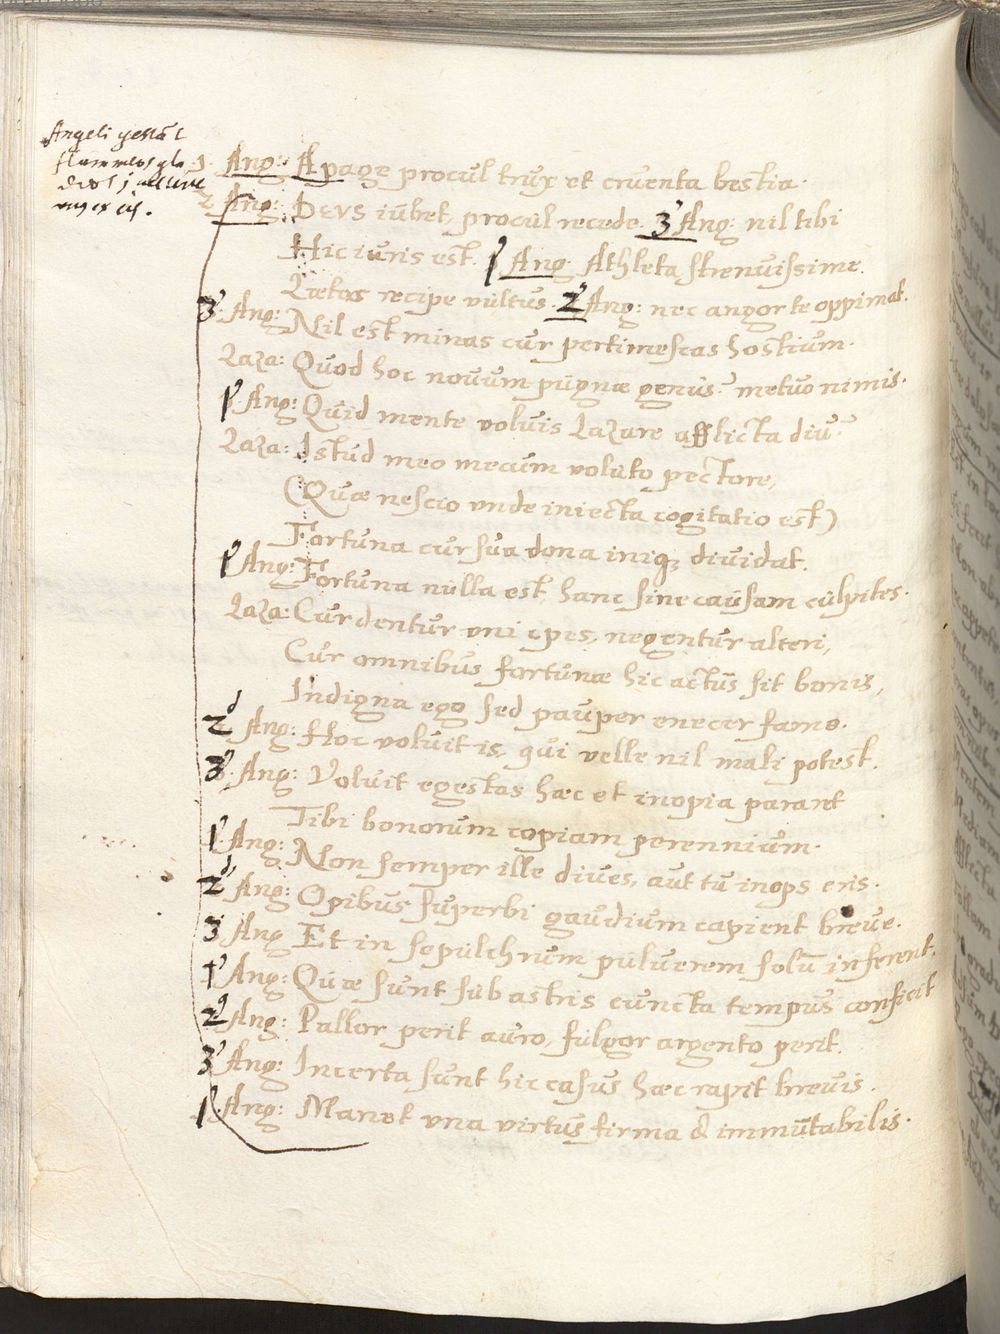 Angeli gestāt
flammeos gla
dios
1. Ang: Apage procul trux et cruenta bestia.
2 Ang: Devs iubet, procul recede. 3 Ang: nil tibi
Hic iuris est. 1 Ang: Athleta strenuissime.
Lætos recipe vultus. 2 Ang: nec angor te opprimat.
3 Ang: Nil est minas cur pertimescas hostium.
Laza: Quod hoc novum pugnæ genus? metuo nimis.
1 Ang: Quid mente voluis Lazare afflicta diu?
Laza: Istud meo mecum voluto pectore,
(Quæ nescio unde iniecta cogitatio est)
Fortuna cur sua dona iniq; dividat.
1 Ang: Fortuna nulla est, hanc sine causam culpites.
Laza: Cur dentur vni opes, negentur alteri,
Cur omnibus fortunæ hic actus sit bonis,
Indigna ego sed pauper enecer fame.
2 Ang: Hoc voluit is, qui velle nil mali potest.
3 Ang: Voluit egestas hæc et inopia parant
Tibi bonorum copiam perennium.
1 Ang: Non semper ille dives, aut tu inops eris.
2 Ang: Opibus superbi gaudium capient breve.
3 Ang Et in sepulchrum pulverem solū inferent.
1 Ang: Quæ sunt sub astris cuncta tempus conficit
2 Ang: Pallor perit auro, fulgor argento perit.
3 Ang: Incerta sunt hic casus hæc rapit brevis.
1 Ang: Manet vna virtus firma & immutabilis.